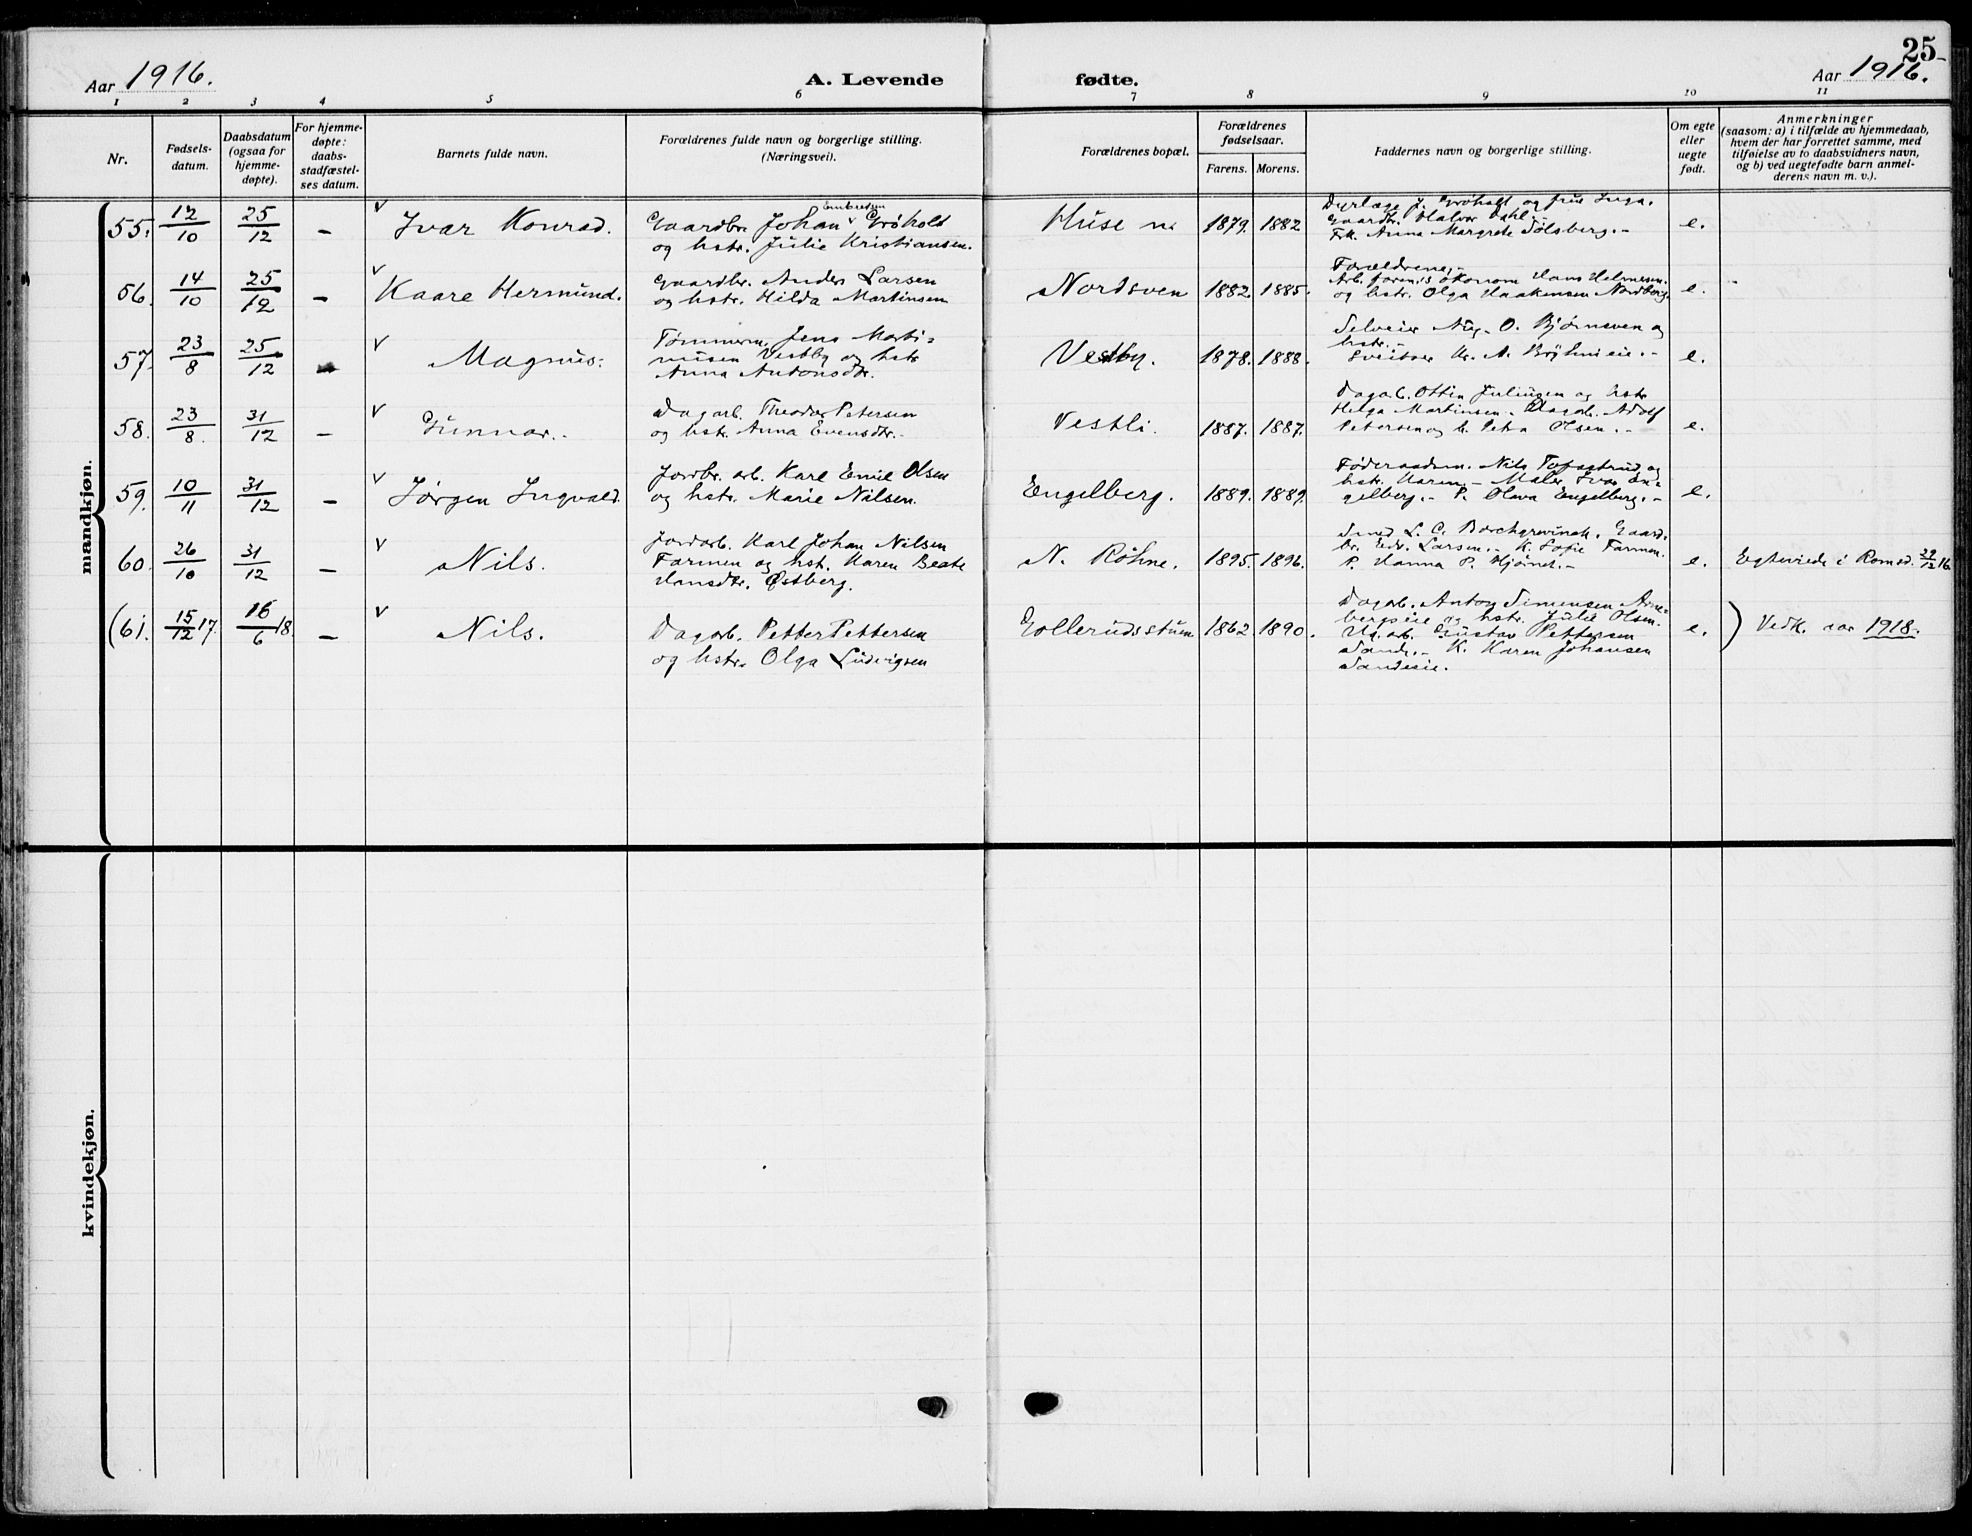 25
Aar 1916.
A. Levende fødte.
Aar 1916.
1 2 3 4 5 6 7 8 9 10 11
Nr.
Fødsels-
datum.
Daabsdatum
(ogsaa for
hjemme-
døpte).
For hjemme-
døpte:
daabs-
stadfæstel-
ses datum.
Barnets fulde navn.
Forældrenes fulde navn og borgerlige stilling.
(Næringsvei).
Forældrenes bopæl.
Forældrenes
fødselsaar.
Farens. Morens.
Faddernes navn og borgerlige stilling.
Om egte
eller
uegte
født.
Anmerkninger
(saasom: a) i tilfælde av hjemmedaab,
hvem der har forrettet samme, med
tilføielse av to daabsvidners navn,
og b) ved uegtefødte barn anmel-
derens navn m. v.).
mandkjøn.
55. 12/10 25/12 – Ivar Konrad.
Embretsen
Gaardbr. Johan v Grøholt
og hstr. Julie Kristiansen.
Huse n. 1879. 1882
Dyrlæge J. Grøholt og frue Inga.
Gaardbr. Halvor Dahl.–
Frk. Anna Margrete Solsberg.–
e.
56. 14/10 25/12 – Kaare Hermund.
Gaardbr. Anders Larsen
og hstr. Hilda Martinsen
Nordsven 1882 1885.
Forældrene.–
økonom Hans Helmesen
og hstr. Olga Haakensen Nordberg.
e.
57. 23/8 25/12 – Magnus.
Tømmerm. Jens Marti=
nusen Vestby og hstr
Anna Antonsdtr.
Vestby. 1878. 1888.
Selveier Aug. O. Bjørnsven og
hstr.–
Sveitser
e.
58. 23/8. 31/12 – Gunnar.
Dagarb. Theodor Petersen
og hstr. Anna Evensdtr.–
Vestli. 1887. 1887.
Dagarb. Julingen og hstr
Helga Martinsen. Dagarb. Adolf
Petersen og h. Petra Olsen.–
e.
59. 10/11 31/12 – Jørgen Ingvald.
Jordbr. arb. Karl Emil Olsen
og hstr. Marie Nilsen.
Engelberg. 1889. 1889
Føderaadsm. Nils Tofastrud og
hstr. Karen.– Maler Ivar En=
gelberg.– P. Olava Engelberg.–
e.
60. 26/10 31/12 – Nils.
Jordarb. Karl Johan Nilsen
Farmen og hst. Karen Beate
Hansdtr. Østberg.
N. Røhne. 1895. 1896.
L. C. Borchgrevinck. Gaard-
br. Edv. Larsen.– K. Sofie Farmen.
P. Hanna P. Hjørnet.–
e.
Egteviede i Romsd. 29/12 16
(61. 15/12 17. 16/6 18. – Nils.
Dagarb. Petter Pettersen
og hstr. Olga Ludvigsen
Gollerudsstuen 1862. 1890.
Dagarb. Anton Simensen Arne=
bergseie og hstr. Julie Olsen.
arb. Gustav Pettersen
Sand.– K. Karen Johansen
Sandseie.
e.
) Vedk. aar 1918.
kvindekjøn.